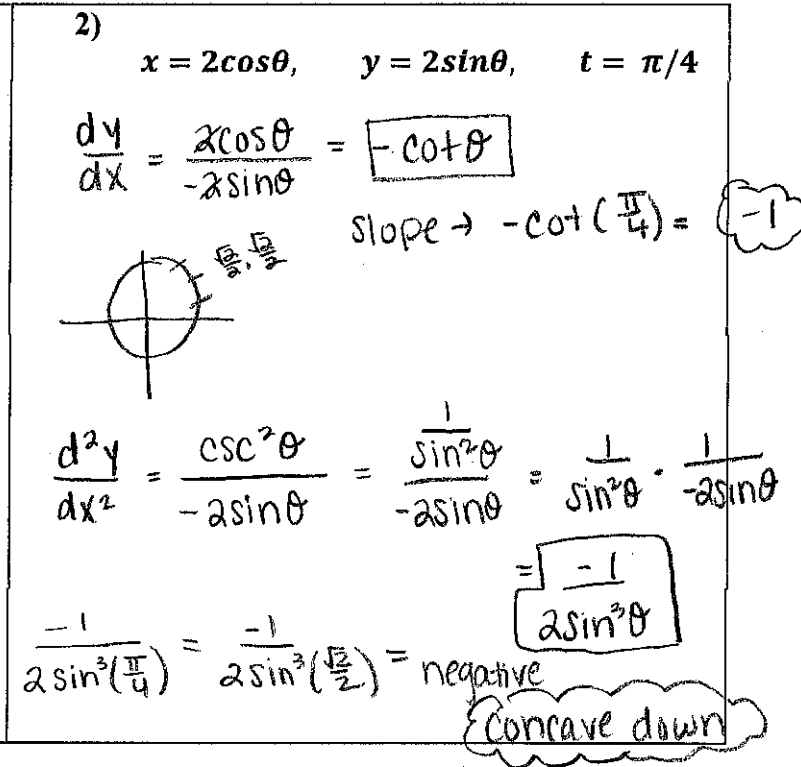 2)
x = 2cosθ, y = 2sinθ, t = π/4
dy/dx = 2cosθ/-2sinθ = -cotθ
slope → -cot(π/4) = -1
√2/2, √2/2
d²y/dx² = csc²θ/-2sinθ = (1/sin²θ)/-2sinθ = 1/sin²θ · 1/-2sinθ
= -1/2sin³θ
-1/2sin³(π/4) = -1/2sin³(√2/2) = negative
concave down